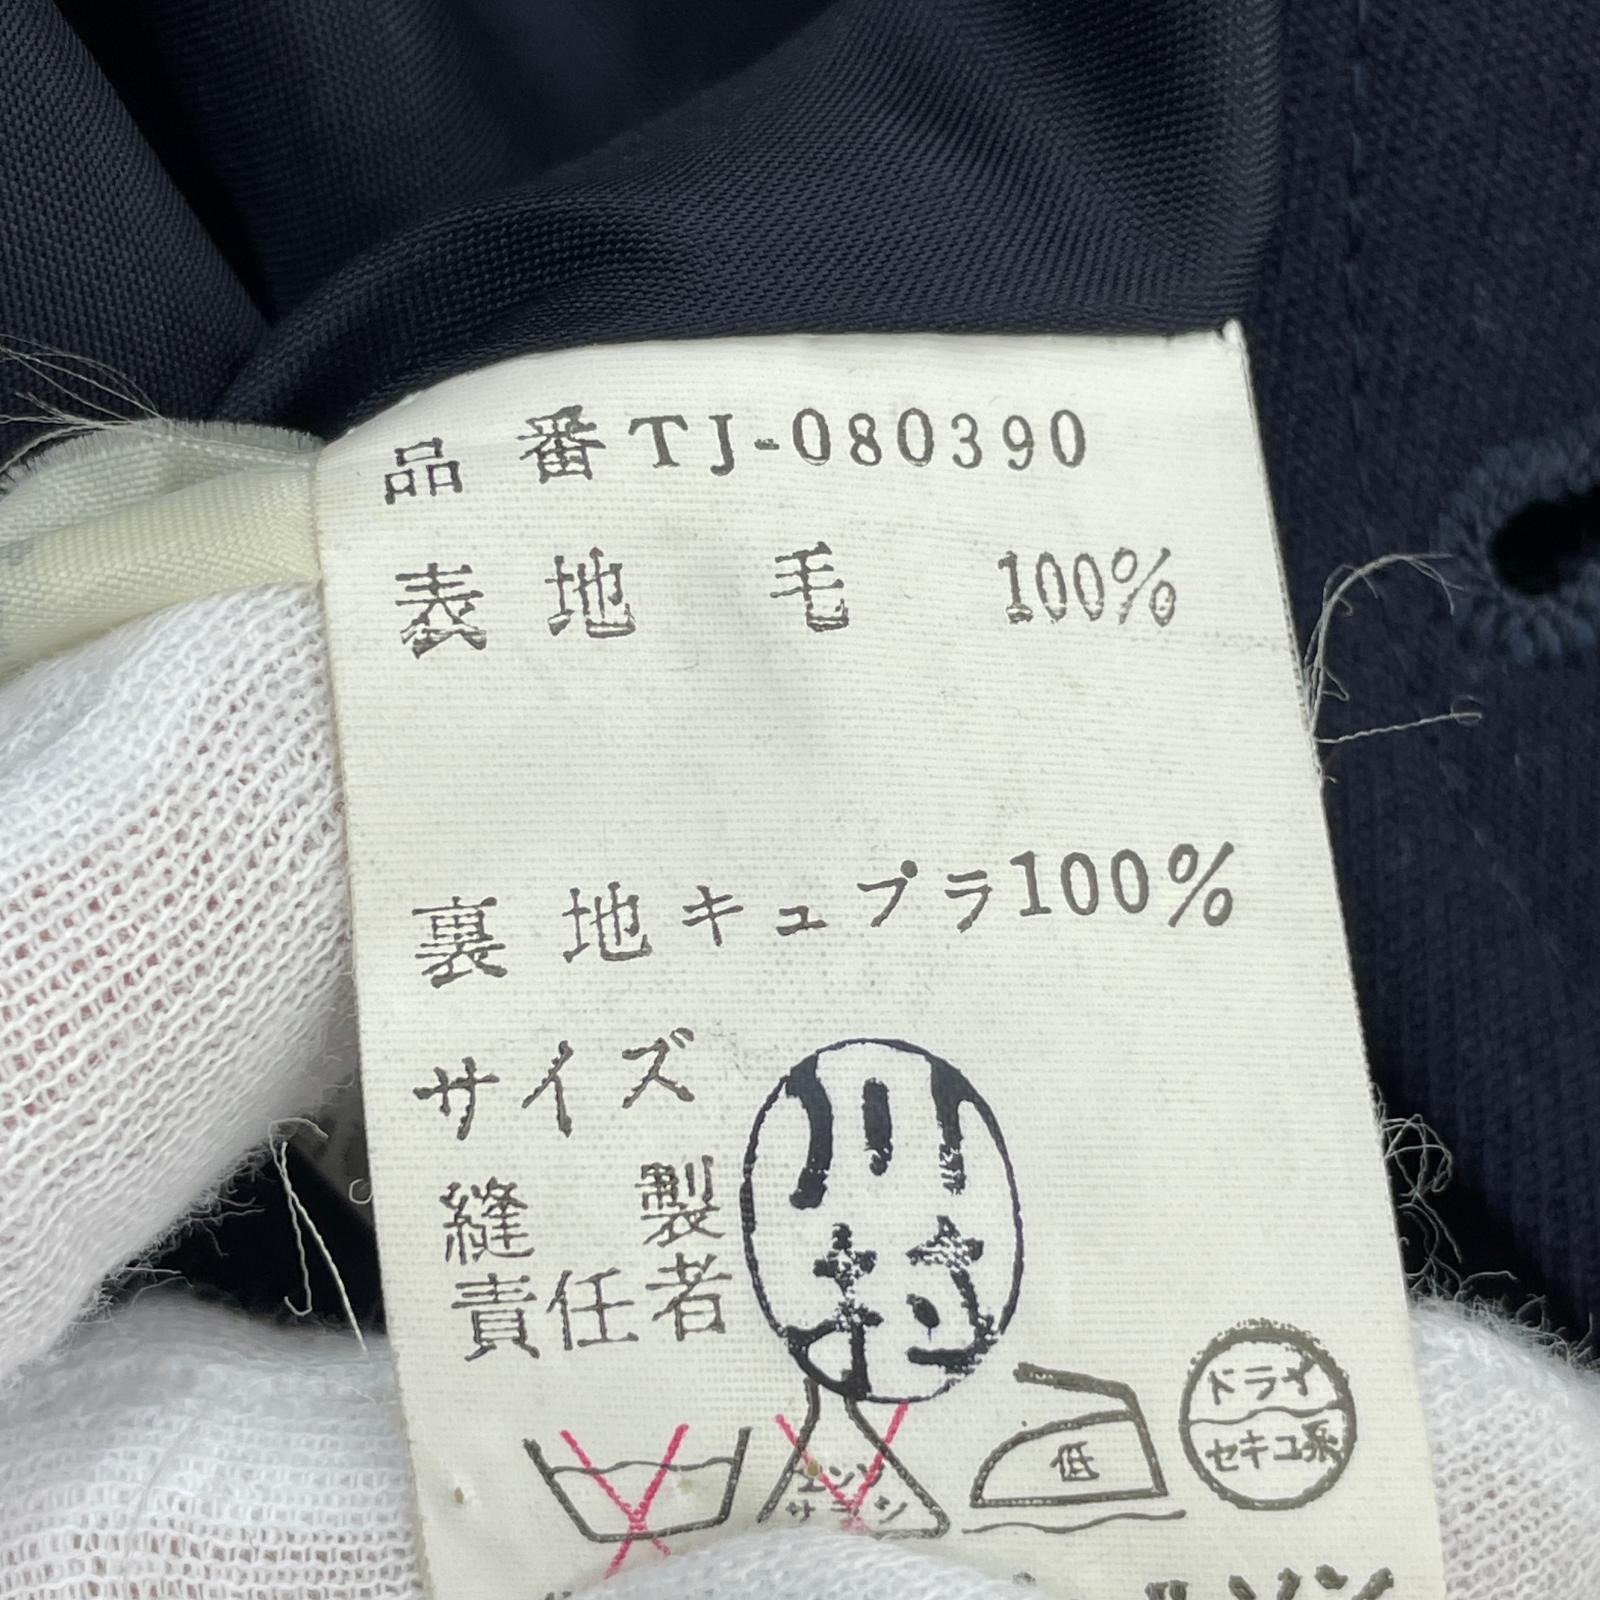 品番TJ-080390
表地 毛 100%
裏地キュプラ100%
サイズ
縫製
責任者
川村
エンソ
サラシ
低
ドライ
セキユ系